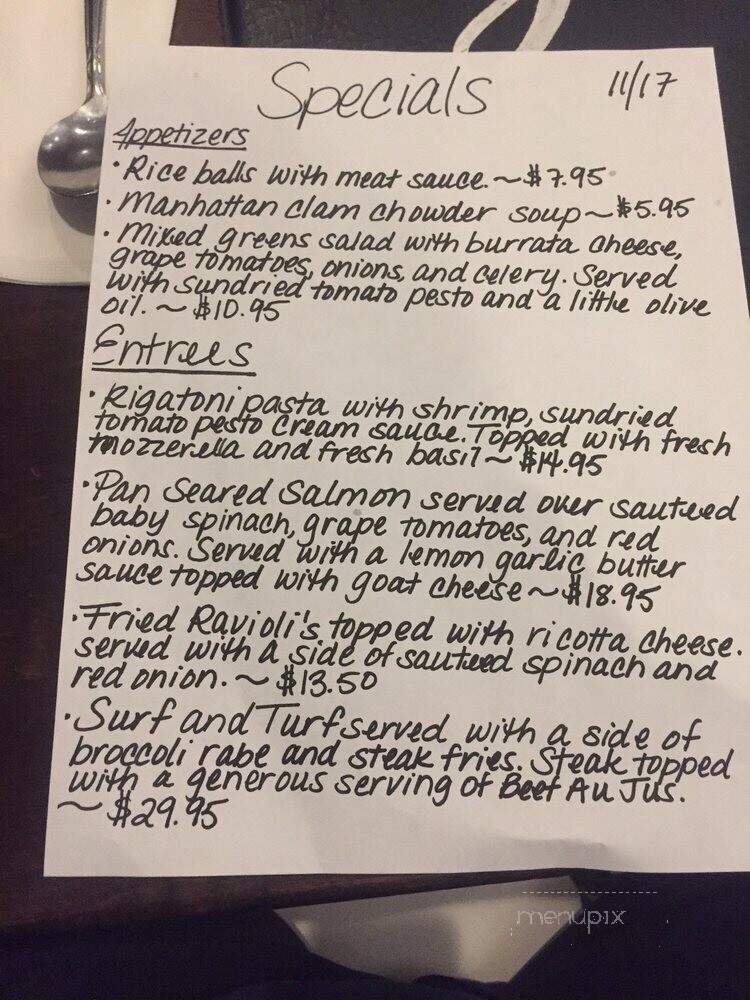 Specials 11/17
Appetizers
• Rice balls with meat sauce. ~ $7.95
• Manhattan clam chowder soup ~ $5.95
• Mixed greens salad with burrata cheese,
grape tomatoes, onions, and celery. Served
with sundried tomato pesto and a little olive
oil. ~ $10.95
Entrees
• Rigatoni pasta with shrimp, sundried
tomato pesto cream sauce. Topped with fresh
mozzerella and fresh basil ~ $14.95
• Pan Seared Salmon served over sauteed
baby spinach, grape tomatoes, and red
onions. Served with a lemon garlic butter
sauce topped with goat cheese ~ $18.95
• Fried Ravioli's topped with ricotta cheese.
served with a side of sauteed spinach and
red onion. ~ $13.50
• Surf and Turf served with a side of
broccoli rabe and steak fries. Steak topped
with a generous serving of Beef Au Jus.
~ $29.95
menupix